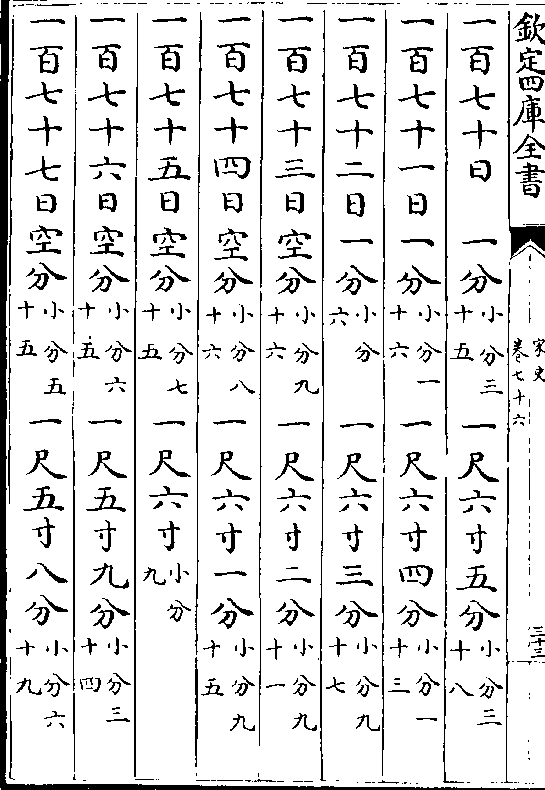 欽定四庫全書
宋史
卷七十六
三十三
一百七十日　一分小分三十五一尺六寸五分小分三十八
一百七十一日一分小分一十六一尺六寸四分小分一十三
一百七十二日一分小分六一尺六寸三分小分九十七
一百七十三日空分小分九十六一尺六寸二分小分九十一
一百七十四日空分小分八十六一尺六寸一分小分九十五
一百七十五日空分小分七十五一尺六寸小分九
一百七十六日空分小分六十五一尺五寸九分小分三十四
一百七十七日空分小分五十五一尺五寸八分小分六十九